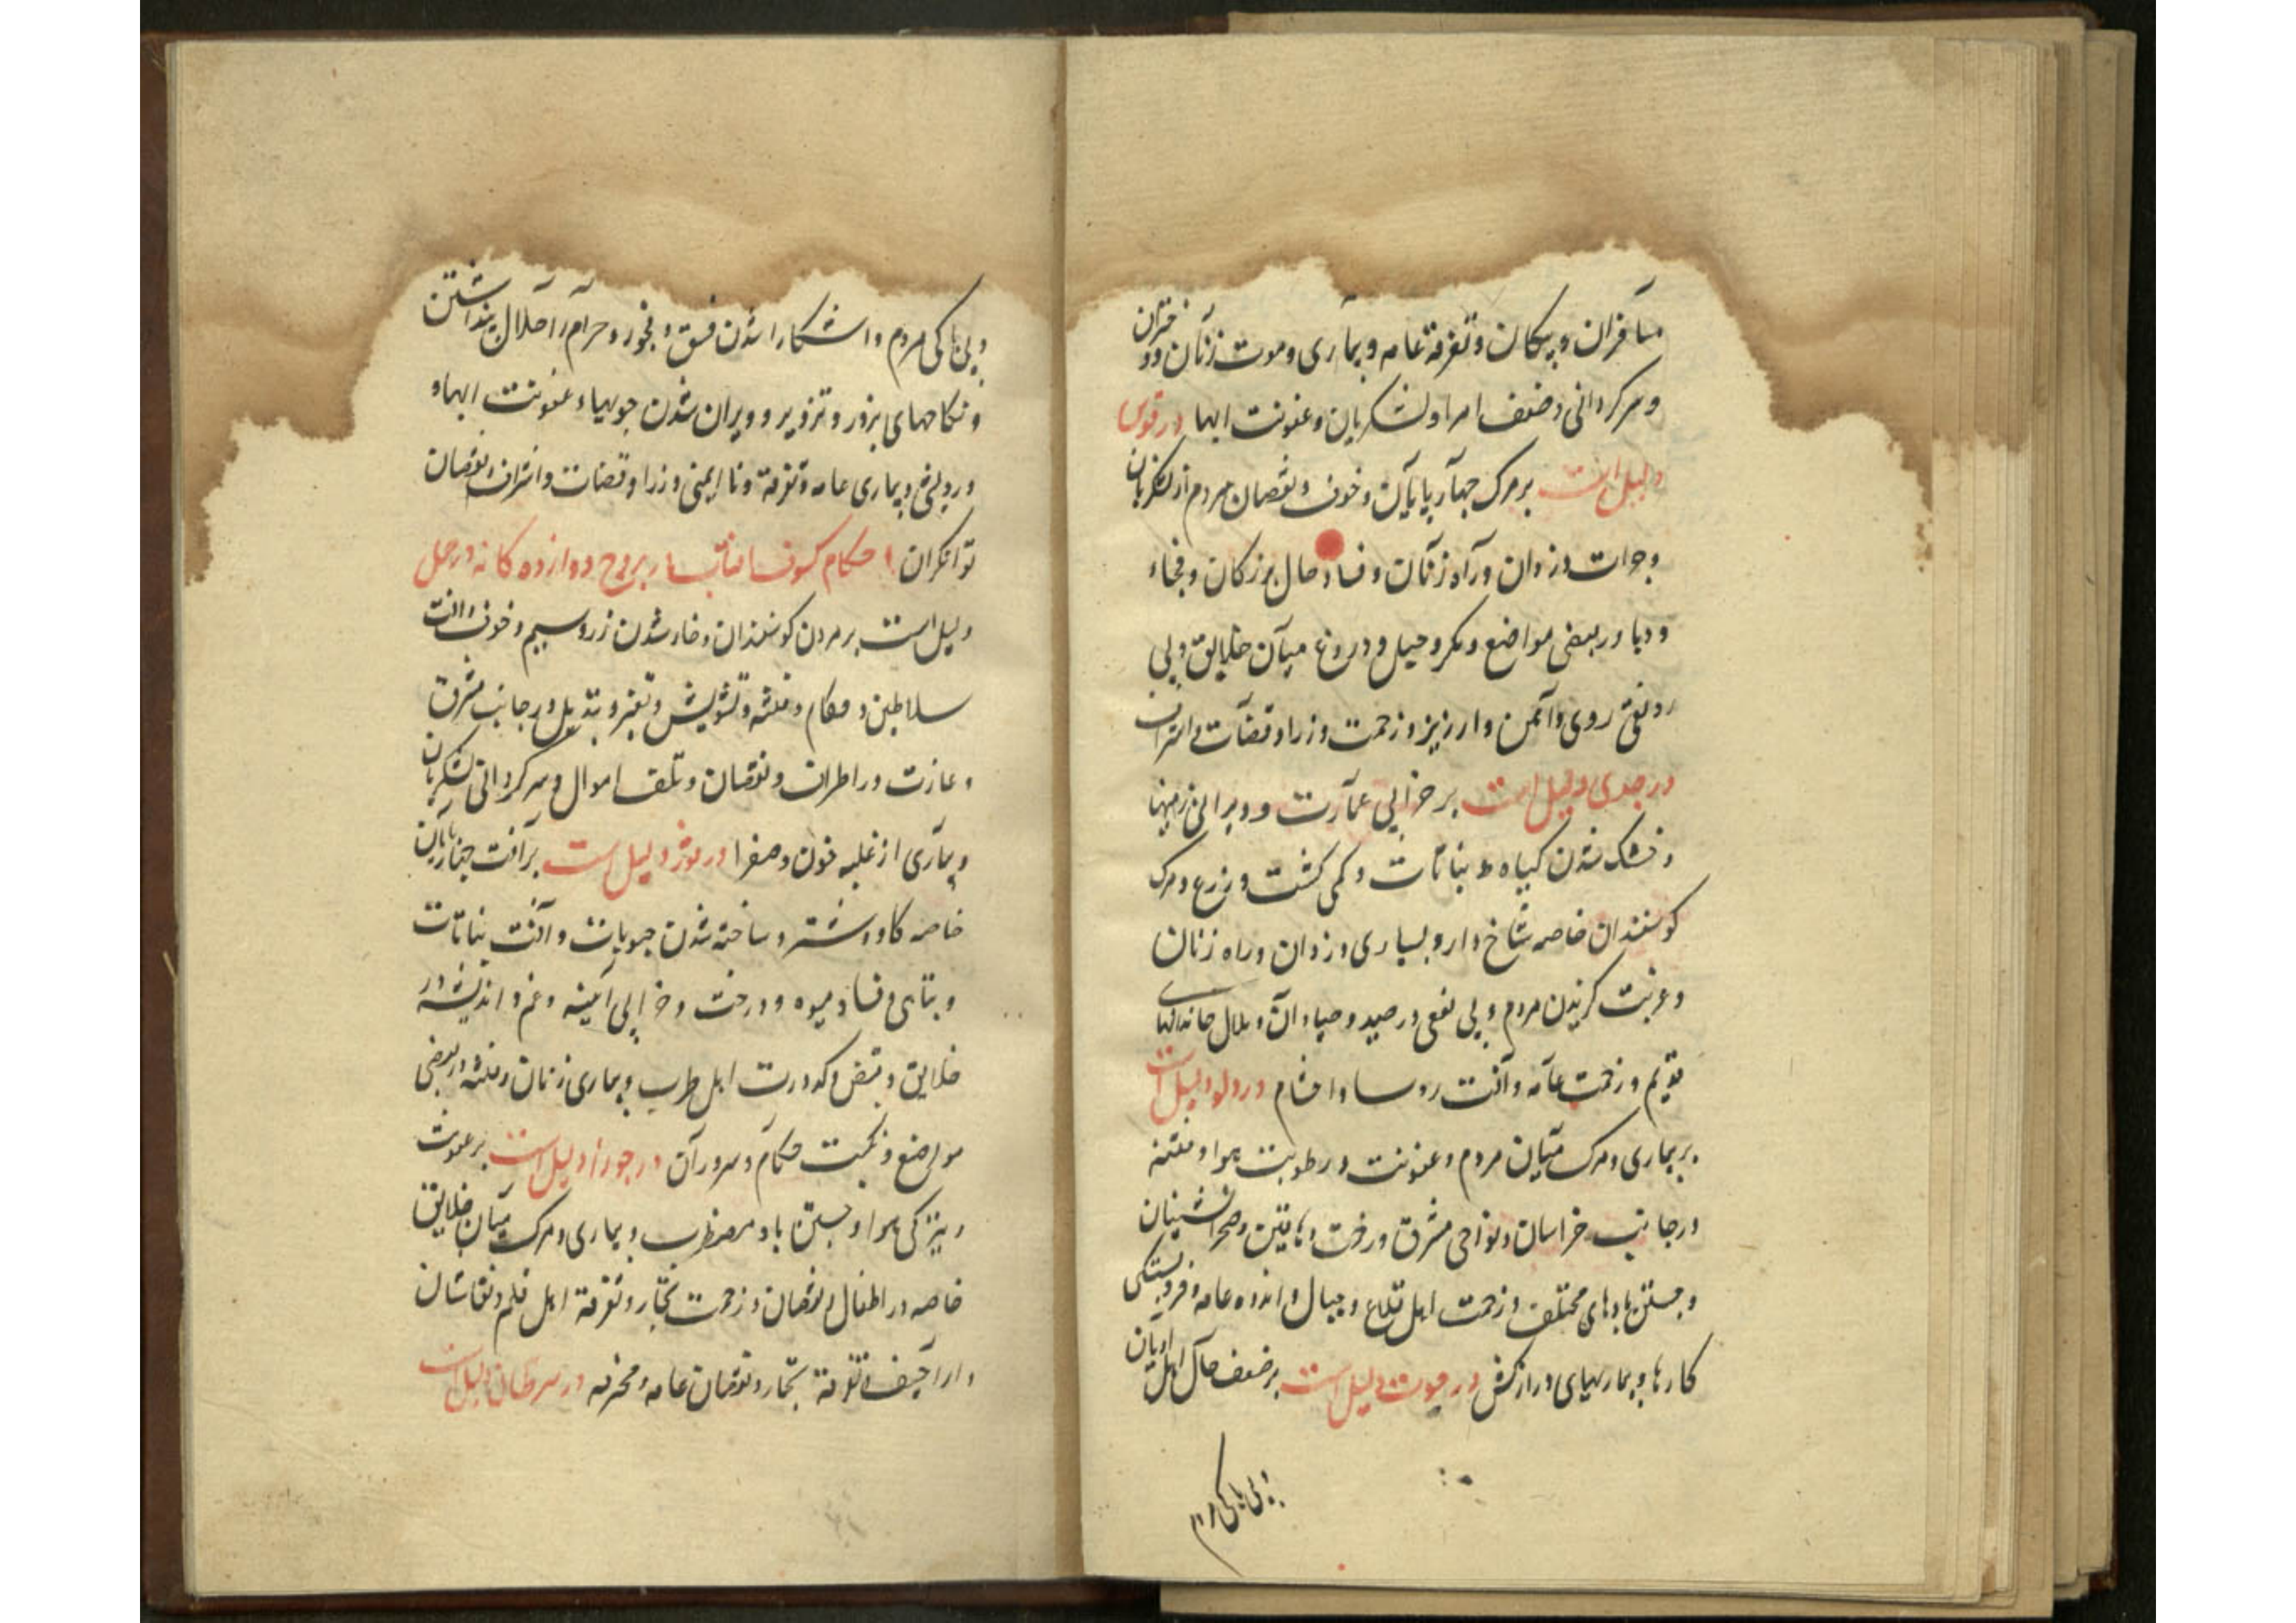 مسافران و پیکان و تفرقهٔ عامه و بیماری و موت زنان و دختران
و سرگردانی و ضعف امرا و لشکریان و عفونت ابها در قوس
دلیل است بر مرک چهارپایان و خوف و نقصان مردم از لشکریان
و جرات دزدان و راه زنان و فساد حال بزرکان و فجاء
و وبا در بعضی مواضع و مکر و حیل و دروغ میان خلایق و بی
رونقی روی و آهن و ارزیز و زحمت وزرا و قضات و اشراف
در جدی دلیل است بر خرابی عمارت و ویرانی زمینها
و خشک شدن کیاه و نباتات و کمی کشت و زرع و مرک
کوسفندان خاصه شاخ دار و بسیاری دزدان و راه زنان
و غربت کزیدن مردم و بی نفعی در صید و صیادان و ملال خاندانهای
قدیم و زحمت عامه و آفت روسا و احشام در دلو دلیل است
بر بیماری و مرک میان مردم و عفونت و رطوبت هوا و فتنه
در جانب خراسان و نواحی مشرق و زحمت دهاقین و صحرانشینان
و جستن بادهای مختلف و زحمت اهل قلاع و جبال و اندوه عامه و فروبستکی
کارها و بیماریهای درازکش در حوت دلیل است بر ضعف حال اهل ادیان
و بی باکی مردم
و بی باکی مردم و اشکارا شدن فسق و فجور و حرام را حلال پنداشتن
و نکاحهای بزور و تزویر و ویران شدن جویها و عفونت ابها و
و بیماری عامه و تفرقه و نا ایمنی وزرا و قضات و اشراف و نقصان
توانکران احکام کسوف افتاب در بروج دوازده کانه در حمل
دلیل است بر مردن کوسفندان و خار شدن زر و سیم و خوف و آفت
سلاطین و حکام و فتنه و تشویش و تغیر و تبدیل در جانب مشرق
و غارت در اطراف و نقصان و تلف اموال و سرکردانی لشکریان
و بیماری از غلبه خون و صفرا در ثور دلیل است بر آفت چهارپایان
خاصه کاو و شتر و ساخته شدن حبوبات و آفت نباتات
و تباهی و فساد میوه و درخت و خرابی ابنیه و غم و اندیشه در
خلایق و قبض و کدورت اهل طرب و بیماری زنان و فتنه در بعضی
مواضع و نکبت حکام و سروران در جوزا دلیل است بر عفونت
و تیرکی هوا و جستن باد مضطرب و بیماری و مرک میان خلایق
خاصه در اطفال و نقصان و زحمت تجار و تفرقه اهل قلم و نقاشان
و اراجیف و تفرقه تجار و نقصان عامه و محترفه در سرطان دلیل است